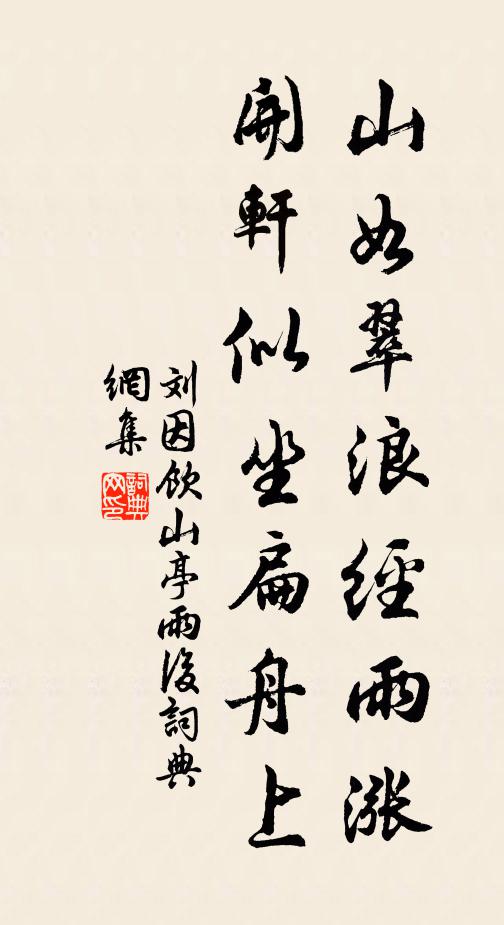 山如翠浪經雨漲
開軒似坐扁舟上
刘因飲山亭雨後詞典
網集
詞典
网印